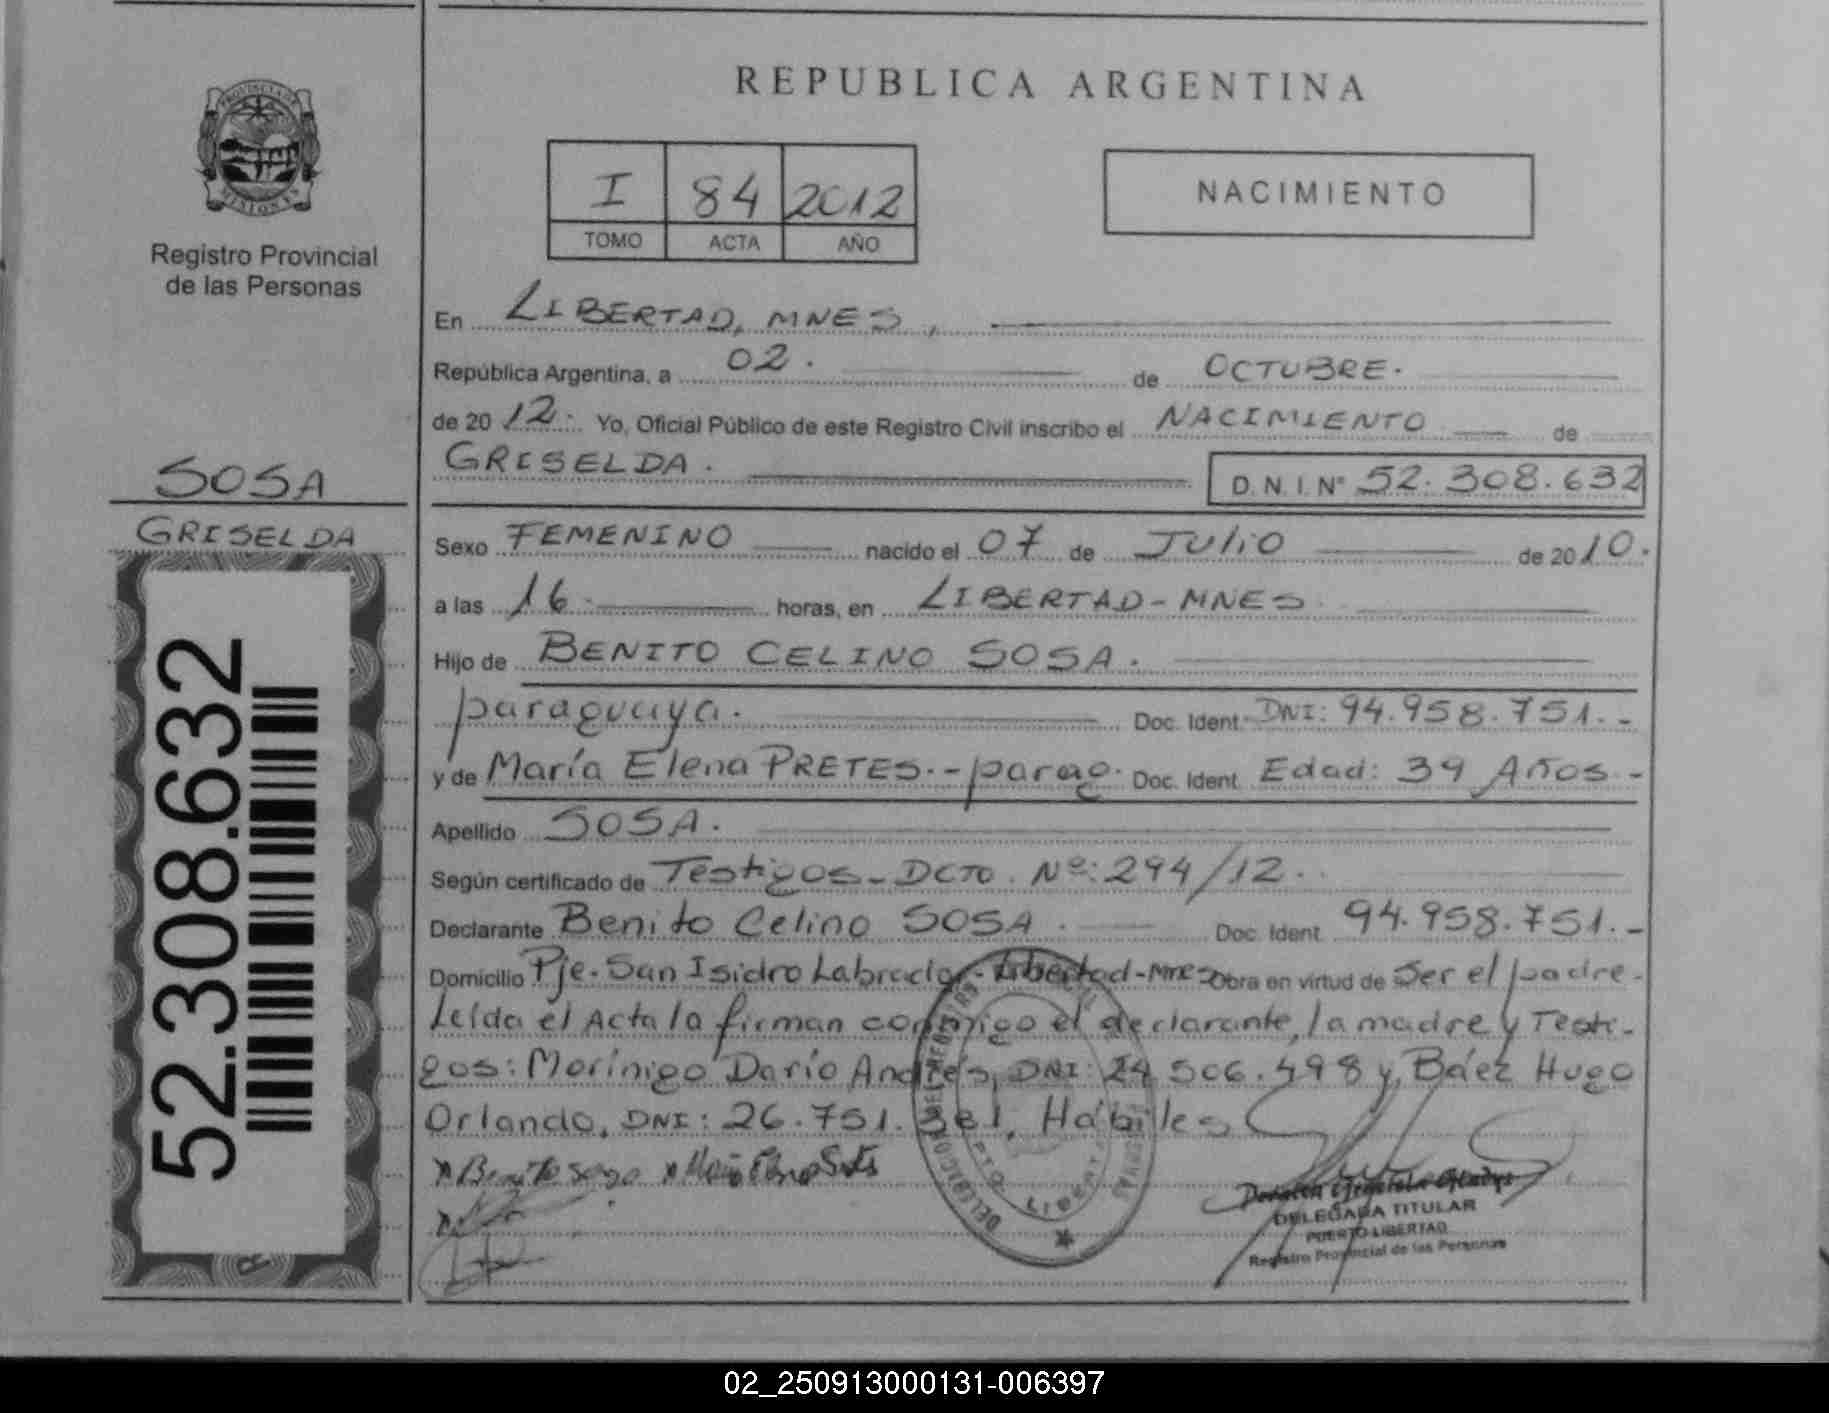 REPUBLICA ARGENTINA
PROVINCIA DE
MISIONES
Registro Provincial
de las Personas
I 84 2012
TOMO ACTA AÑO
NACIMIENTO
En LIBERTAD, MNES,
República Argentina, a 02. de OCTUBRE.
de 2012. Yo, Oficial Público de este Registro Civil inscribo el NACIMIENTO de
GRISELDA. D. N. I. Nº 52.308.632
SOSA
GRISELDA
52.308.632
Sexo FEMENINO nacido el 07 de Julio de 2010.
a las 16. horas, en LIBERTAD - MNES.
Hijo de BENITO CELINO SOSA.
paraguaya. Doc. Ident. DNI: 94.958.751.-
y de María Elena PRETES.- parag. Doc. Ident. Edad: 39 Años.-
Apellido SOSA.
Según certificado de Testigos - DCTO. Nº: 294/12.
Declarante Benito Celino SOSA. Doc. Ident. 94.958.751.-
Domicilio Pje. San Isidro Labrador - Libertad - Mnes Obra en virtud de Ser el padre.
Leída el Acta la firman conmigo el declarante, la madre y Testi-
gos: Morínigo Darío Andrés, DNI: 24.506.498 y Báez Hugo
Orlando, DNI: 26.751.381, Hábiles
DELEGADA TITULAR
PUERTO LIBERTAD
Registro Provincial de las Personas
PTO. LIBERTAD
02_250913000131-006397